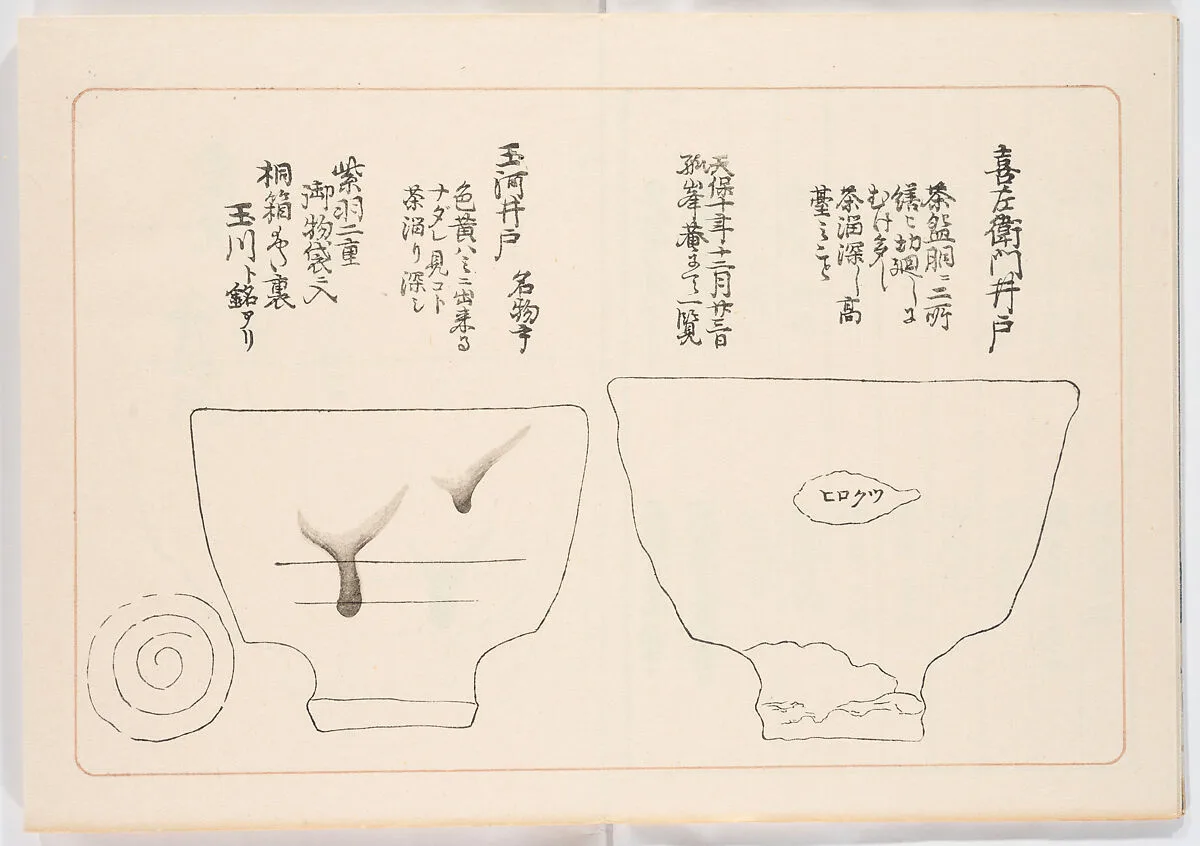 喜左衛門井戸
茶盌胴ニ二所
繕ヒ
茶溜深し高
臺ミこと
天保十年十二月廿三日
孤峯庵ニて一覧
ヒロクツ
玉河井戸 名物手
色黄ハミニ出来る
ナダレ見コト
茶溜り深し
紫羽二重
御物袋ニ入
桐箱 裏
玉川ト銘アリ